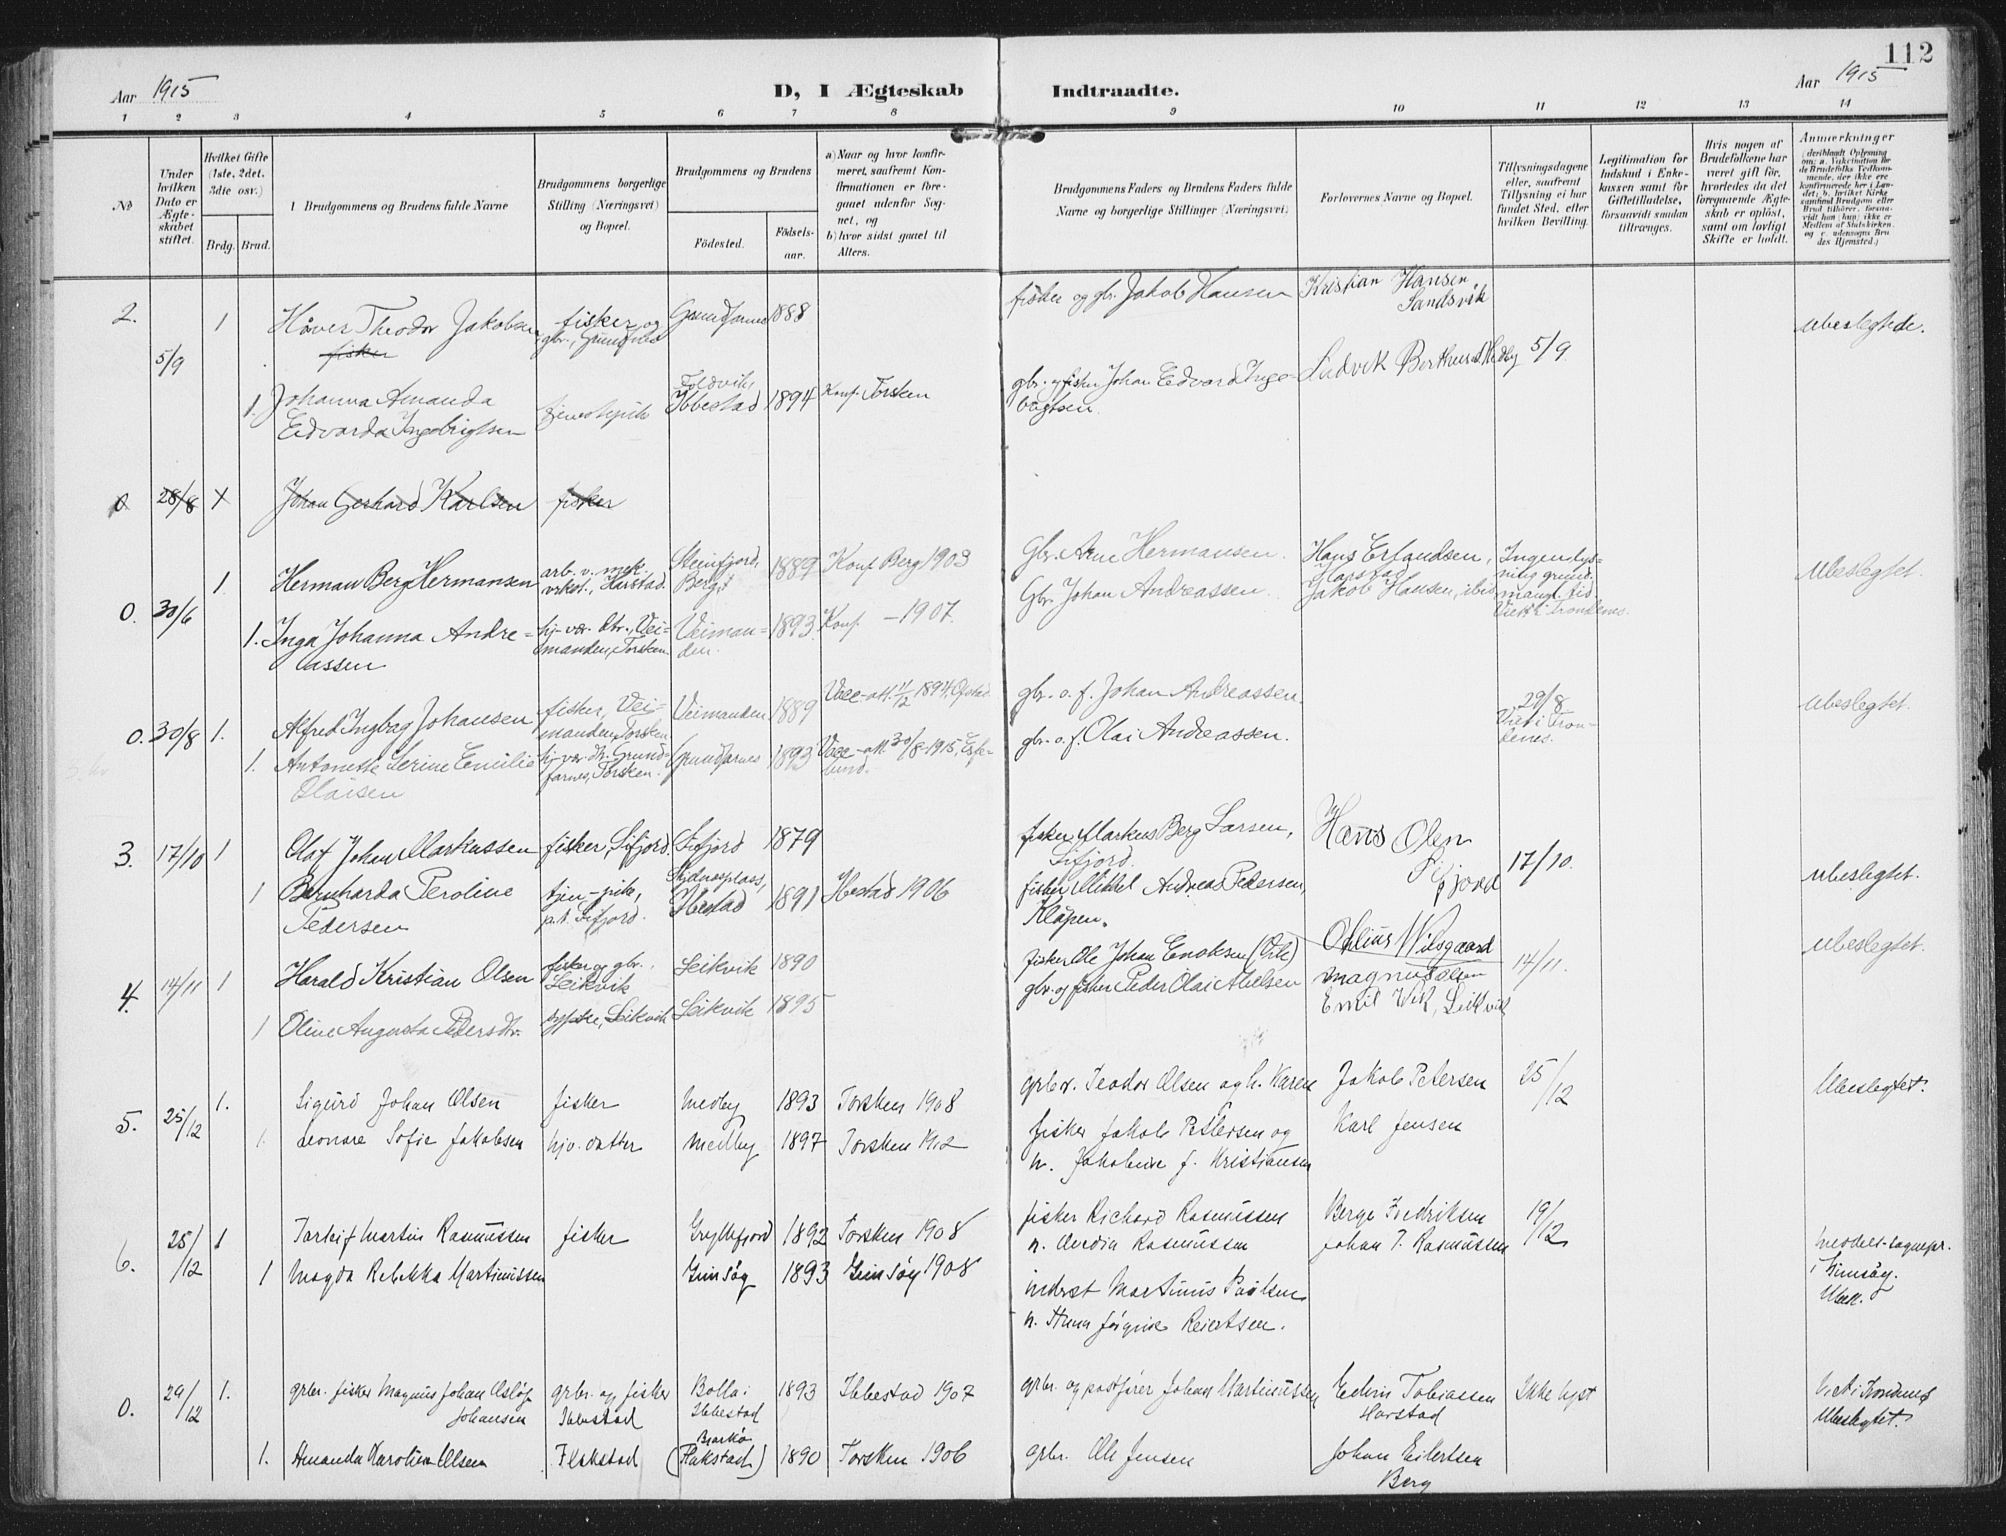 112
Aar 1915
D, I Ægteskab
Indtraadte.
Aar 1915
1 2 3 4 5 6 7 8 9 10 11 12 13 14
No
Under hvilken Dato er Ægteskabet stiftet.
Hvilket Gifte (1ste, 2det, 3die osv.)
Brdg. Brud.
Brudgommens og Brudens fulde Navne
Brudgommens borgerlige Stilling (Næringsvei) og Bopæl.
Brudgommens og Brudens
Födested.
Födselsaar.
a) Naar og hvor konfirmeret, saafremt Konfirmationen er foregaaet udenfor Sognet, og
b) hvor sidst gaaet til Alters.
Brudgommens Faders og Brudens Faders fulde Navne og borgerlige Stillinger (Næringsvei)
Forlovernes Navne og Bopæl.
Tillysningsdagene eller, saafremt Tillysning ei har fundet Sted, efter hvilken Bevilling.
Legitimation for Indskud i Enkekassen samt for Giftetilladelse, forsaavidt saadan tiltrænges.
Hvis nogen af Brudefolkene har været gift för, hvorledes da det foregaaende Ægteskab er oplöst, samt om lovligt Skifte er holdt.
Anmerkninger
(deriblandt Oplysning om: a. Vaksination for de Brudefolks Vedkommende, der ikke ere konfirmerede her i Landet; b. hvilket Kirkesamfund Brudgom eller Brud tilhörer, forsaavidt han (hun) ikke er Medlem af Statskirken, og c. udensogns Brudes Hjemsted.)
2. 5/9 1 Håver Theodor Jakobsen fisker og gbr., Grundfarnes 1888 fisker og gbr. Jakob Hansen Kristian Hansen Sandsvik ubeslegtede.
fisker
1. Johanna Amanda Edvarda Ingebrigtsen tjenestepike Foldvik, Ibbestad 1894 Konf. Torsken gbr. og fisker Johan Edvard Ingebrigtsen. Ludvik Bertheus Medby 5/9
28/8 Johan Gerhard Karlsen fisker
0. 30/6 1. Herman Berg Hermansen arb. v. mek. verkst., Harstad Steinfjord, Berg 1889 Konf Berg 1903 Gbr. Arne Hermansen. Hans Erlandsen, Harstad ubeslegtet.
1. Inga Johanna Andreassen hj. vær. dtr., Veimanden, Torsken Veimanden. 1893 Konf - 1907. Gbr. Johan Andreassen. Jakob Hansen, ibid. Ingen lysning grund. mangl. tid Viet i Trondenes.
0. 30/8 1. Alfred Ingbag Johansen fisker, Veimanden, Torsken Veimanden 1889 gbr. o. f. Johan Andreassen. 29/8 Viet i Trondenes. ubeslegtet.
1. Antonette Serine Emilie Olaisen hj. vær. dtr. Grundfarnes, Torsken. Grundfarnes 1893 Vacc-att. 30/8-1915, gbr. o. f. Olai Andreassen.
3. 17/10 1 Olaf Johan Markussen fisker, Sifjord. Sifjord 1879 fisker Markus Berg Larsen, Sifjord. Hans Olsen Sifjord 17/10. ubeslegtet.
1 Bernharda Peroline Pedersen tjen-pike, p.t. Sifjord. Ibestad 1891 Ibestad 1906 fisker Mikkel Andreas Pedersen, Klåpen.
4. 14/11 1 Harald Kristian Olsen fisker og gbr., Leikvik Leikvik 1890 fisker Ole Johan Enoksen Othilius Wilsgaard 14/11. ubeslegtet.
1 Oline Augusta Pedersdtr. Leikvik Leikvik 1895 gbr. og fisker Peder Olai Abelsen Magnus Olsen
Emil Vik, Leikvik
5. 25/12 1. Sigurd Johan Olsen fisker Medby 1893 Torsken 1908 grbr. Teodor Olsen og h. Karen Jakob Petersen 25/12 Ubeslegtet.
1. Leonore Sofie Jakobsen hjv. datter Medby 1897 Torsken 1912 fisker Jakob Pettersen og h. Jakobine f. Kristiansen Karl Jensen
6. 25/12 1 Torleif Martin Rasmussen fisker Gryllefjord 1892 Torsken 1908 fisker Richard Rasmussen Berge Fredriksen 19/12
1 Magda Rebekka Martinussen Gimsøy 1893 Gimsøy 1908 h. Rasmussen Johan T. Rasmussen
inderst Martinus Paulsen h. Anna Reiertsen. i Gimsøy. Ubesl.
0. 29/12 1. grbr. fisker Magnus Johan Asløf Johansen grbr. og fisker Ibbestad Bolla i Ibbestad 1893 Ibbestad 1907 grbr. og postfører Johan Martinussen Edvin Tobiassen Harstad Ikke lyst Viet i Trondenes Ubeslegtet.
1. Amanda Karoline Olsen Flakstad Bjarkø (Flakstad) 1890 Torsken 1906 grbr. Ole Jensen Johan Eilertsen Berg